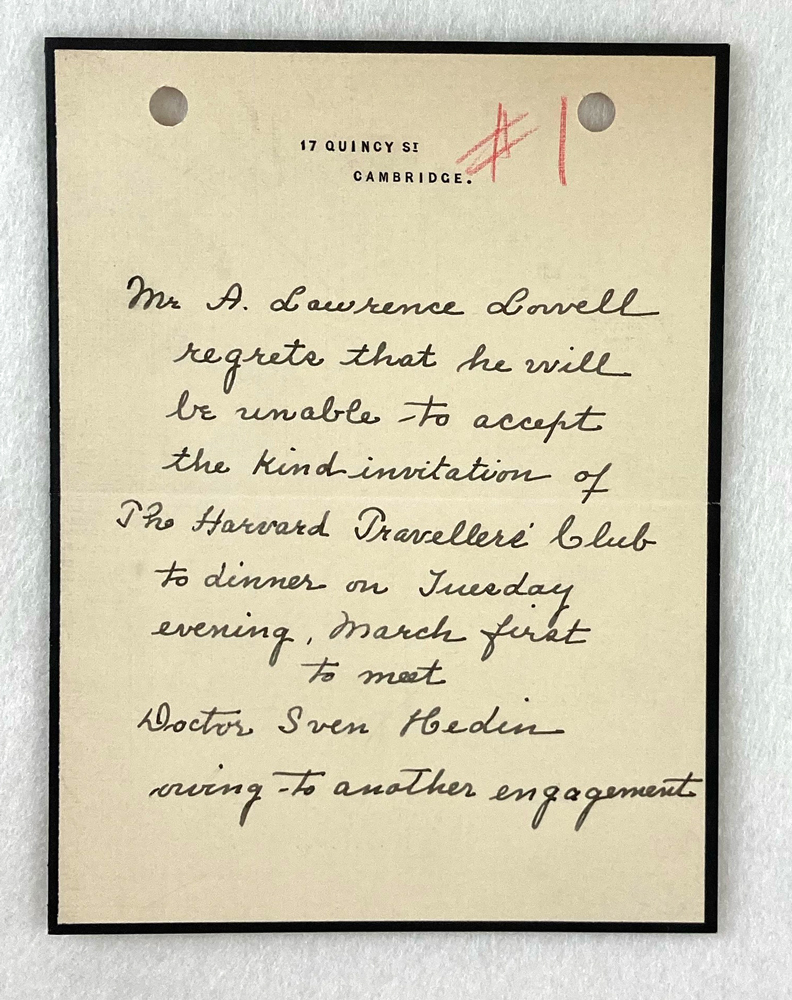 17 QUINCY ST
CAMBRIDGE.
#1
Mr A. Lawrence Lowell
regrets that he will
be unable to accept
the kind invitation of
The Harvard Travellers' Club
to dinner on Tuesday
evening, March first
to meet
Doctor Sven Hedin
owing to another engagement